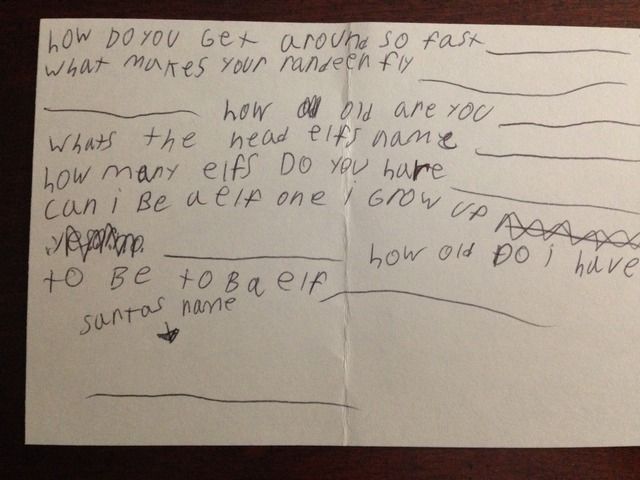 how DO YOU Get around so fast
what makes your randeer fly
how old are you
whats the head elfs name
how many elfs DO YOU have
can i Be a elf one i Grow up
how old DO i have
to BE to B a elf
santas name